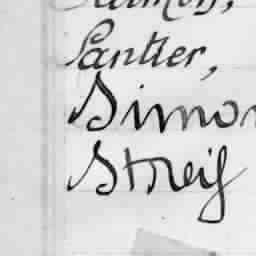 Pantier,
Simon
Streif